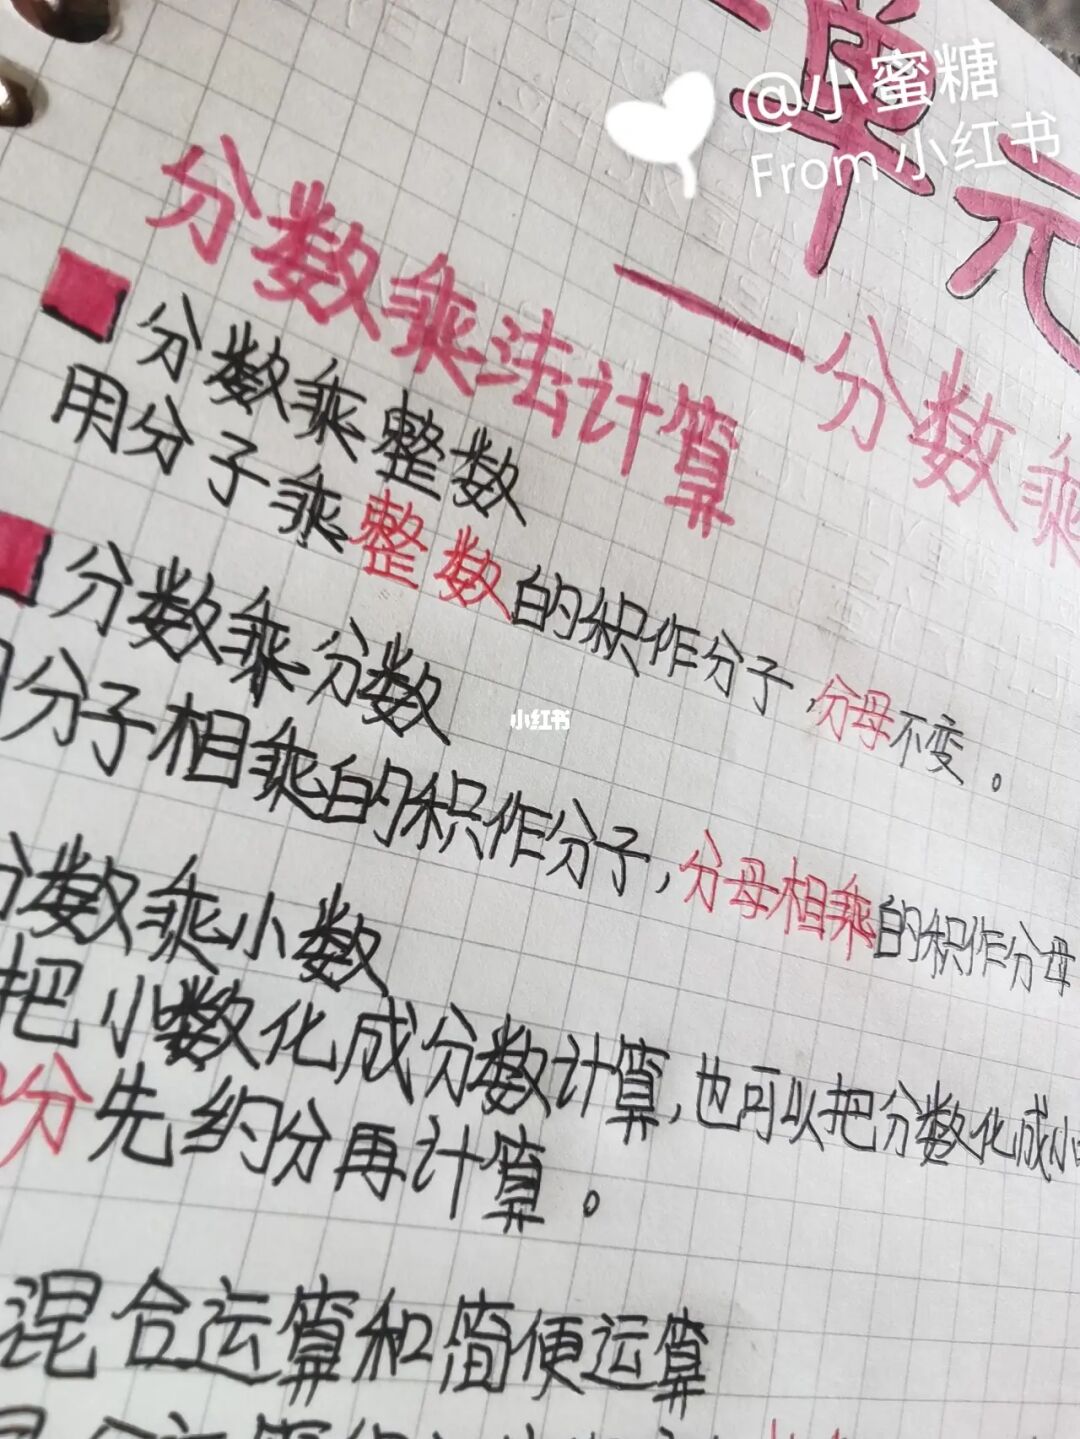 @小蜜糖
From 小红书
单元
一分数乘
分数乘法计算
分数乘整数
用分子乘整数的积作分子,分母不变。
分数乘分数
分子相乘的积作分子,分母相乘的积作分母
小红书
分数乘小数
把小数化成分数计算,也可以把分数化成小
分先约分再计算。
混合运算和简便运算